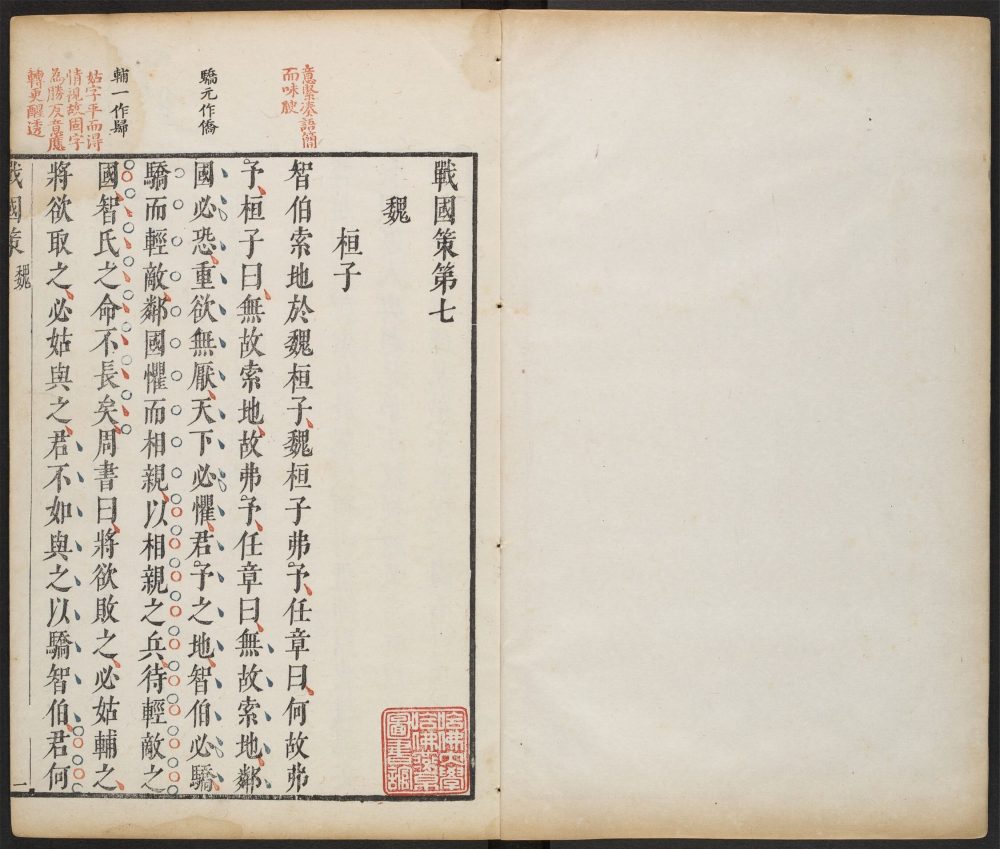 戰國策第七
魏
桓子
智伯索地於魏桓子魏桓子弗予任章曰何故弗
予桓子曰無故索地故弗予任章曰無故索地鄰
國必恐重欲無厭天下必懼君予之地智伯必驕
驕而輕敵鄰國懼而相親以相親之兵待輕敵之
國智氏之命不長矣周書曰將欲敗之必姑輔之
將欲取之必姑與之君不如與之以驕智伯君何
戰國策 魏 一
意緊湊語簡
而味腴
驕元作僑
輔一作歸
姑字平而得
情視故固字
為勝反意處
轉更醒透
哈佛大學
哈佛燕京
圖書館